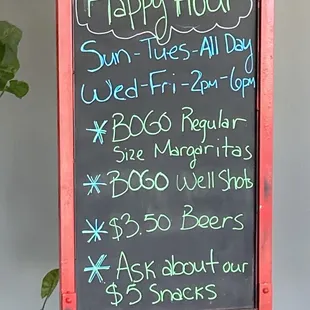 Happy Hour
Sun-Tues-All Day
Wed-Fri-2pm-6pm
* BOGO Regular
Size Margaritas
* BOGO Well Shots
* $3.50 Beers
* Ask about our
$5 Snacks